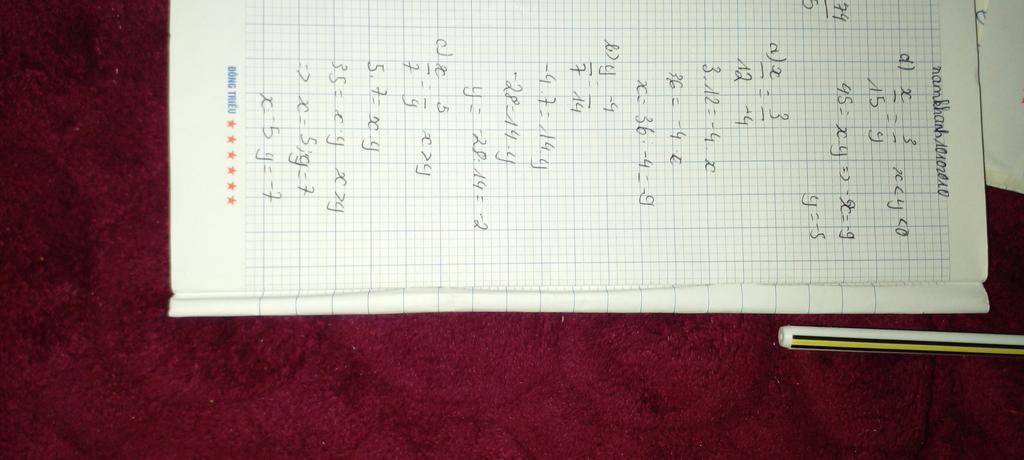 74
5
nambhanhlologelo
d) x/15 = 3/y x<y<0
45 = xy => -x = -9
y = -5
a) x/12 = 3/-4
3.12 = -4. x
36 = -4 x
x = 36: -4 = -9
b) y/7 -4/14
-4.7 = 14y
-28 = 14.y
y = -28:14 = -2
c) x/7 = 5/y x>y
5.7 = x.y
35 = x.y x>y
=> x = 5; y = 7
x -5 y = -7
ĐÔNG THIỀU